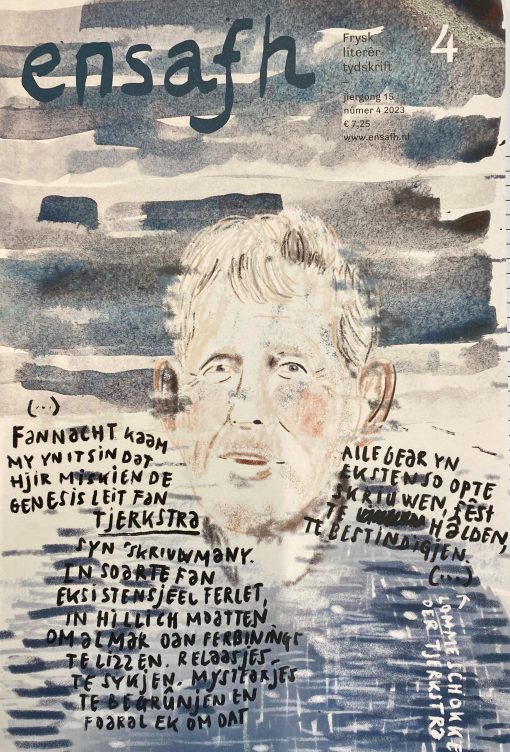 ensafh
Frysk
literêr
tydskrift
4
jiergong 15
nûmer 4 2023
€ 7,25
www.ensafh.nl
(...)
FANNACHT KAAM
MY YN IT SIN DAT
HJIR MISKIEN DE
GENESIS LEIT FAN
TJERKSTRA
SYN SKRIUWMANY.
IN SOARTE FAN
EKSISTENSJEEL FERLET,
IN HILLICH MOATTEN
OM ALMAR OAN FERBININGS
TE LIZZEN. RELAASJES
TE SYKJEN. MYSTEARJES
TE BEGRÛNJEN EN
FOARAL EK OM DAT
ALLEGEAR YN
EKSTEN SO OP TE
SKRIUWEN, FÊST
TE HÂLDEN,
TE BESTINDIGJEN.
(...)
LOMME SCHOKK
OER TJERKSTRA